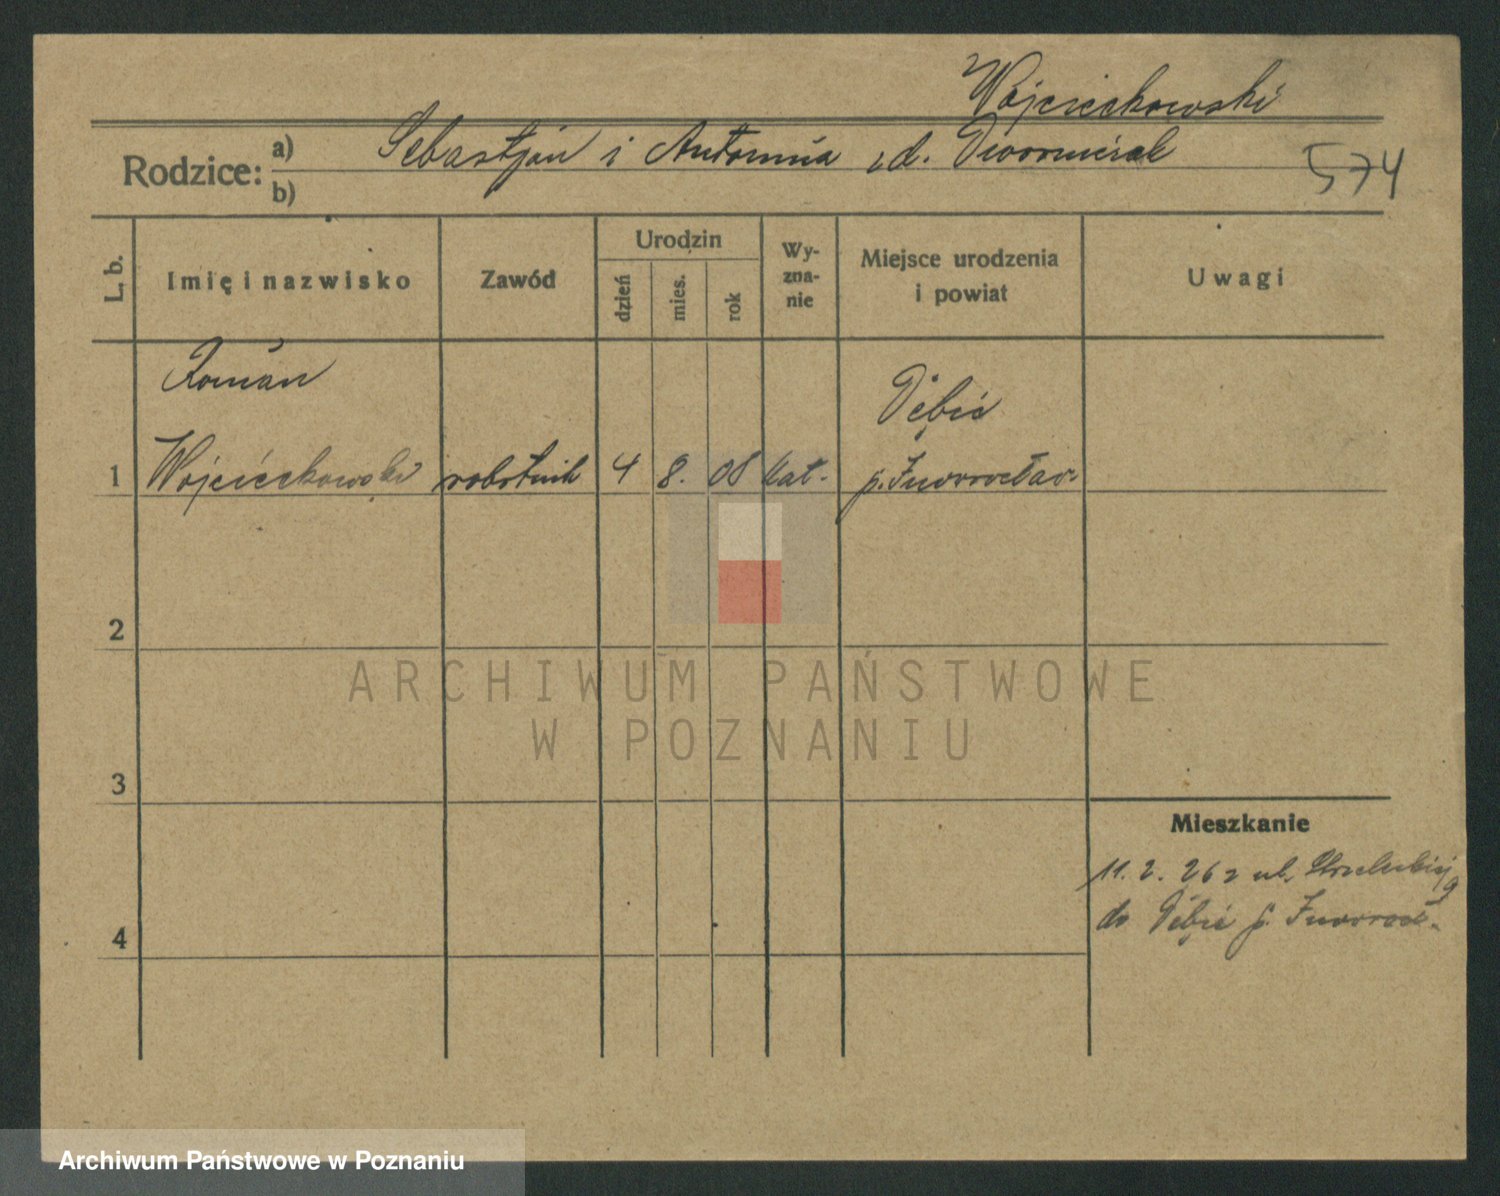 Wojciechowski
Rodzice: a) Sebastjan i Antonina z d. Dwornicrak
b)
574
L. b.
Imię i nazwisko
Zawód
Urodzin
dzień
mies.
rok
Wy-
zna-
nie
Miejsce urodzenia
i powiat
Uwagi
Roman
Dębie
1 Wojciechowski robotnik 4 8. 08 kat. p. Inowrocław
2
ARCHIWUM PAŃSTWOWE
W POZNANIU
3
Mieszkanie
11. 2. 26 z ul.
do Dębie p. Inowrocł.
4
Archiwum Państwowe w Poznaniu